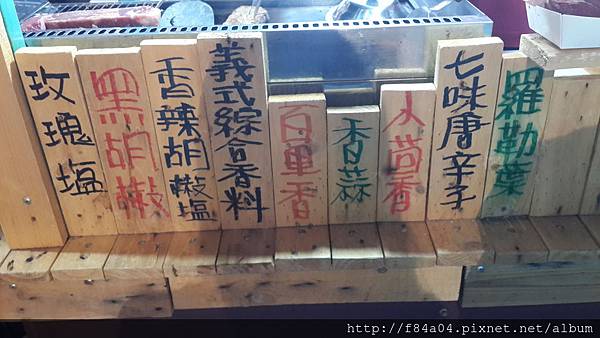 玫瑰塩
黑胡椒
香辣胡椒塩
義式綜合香料
百里香
香蒜
小茴香
七味唐辛子
羅勒葉
http://f84a04.pixnet.net/album